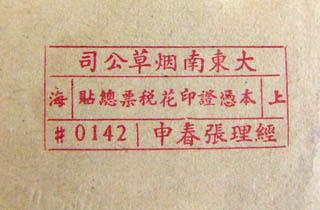 大東南烟草公司
上海 本憑證印花税票總貼
經理張春申 | 0142#